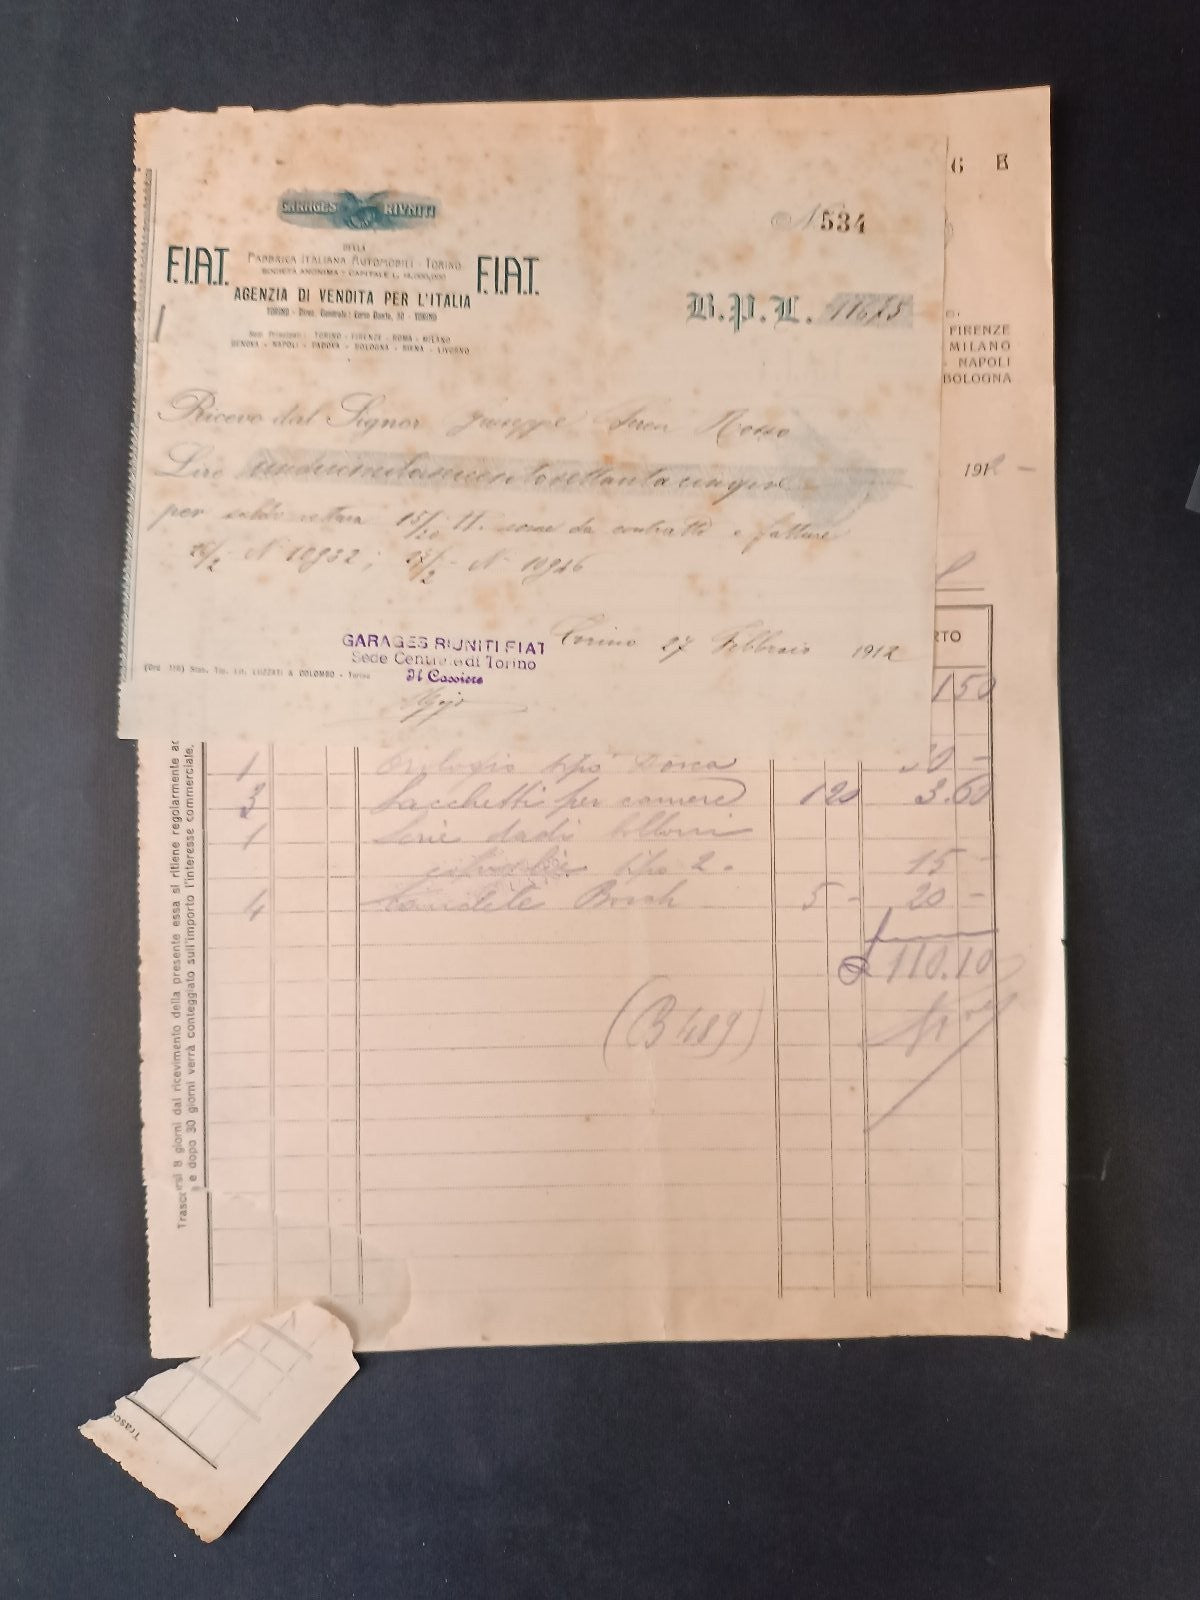 GARAGES RIUNITI
DELLA
F.I.A.T. FABBRICA ITALIANA AUTOMOBILI - TORINO F.I.A.T.
SOCIETÀ ANONIMA - CAPITALE L.
AGENZIA DI VENDITA PER L'ITALIA
TORINO - Direz. Generale: Corso Dante, 30 - TORINO
Sedi Principali: TORINO - FIRENZE - ROMA - MILANO
GENOVA - NAPOLI - PADOVA - BOLOGNA - SIENA - LIVORNO
N 534
B.P.L. 11675
6 E
FIRENZE
MILANO
- NAPOLI
BOLOGNA
1912 -
Ricevo dal Signor Giuseppe Rosso
Lire undicimilaseicentosettantacinque
per saldo vettura 15/20 come da contratto e fatture
N 10932; N 10946
Torino 27 Febbraio 1912
GARAGES RIUNITI FIAT
Sede Centrale di Torino
Il Cassiere
Stab. Tip. Lit. LUZZATI & COLOMBO - Torino
RTO
150
1 Orologio tipo
3 Sacchetti per camere 120 3.60
1 Serie dadi
tipo 2. 15 -
4 Candele Bosch 5 - 20 -
110.10
(B 489)
Trascorsi 8 giorni dal ricevimento della presente essa si ritiene regolarmente ac
e dopo 30 giorni verrà conteggiato sull'importo l'interesse commerciale.
Trasco